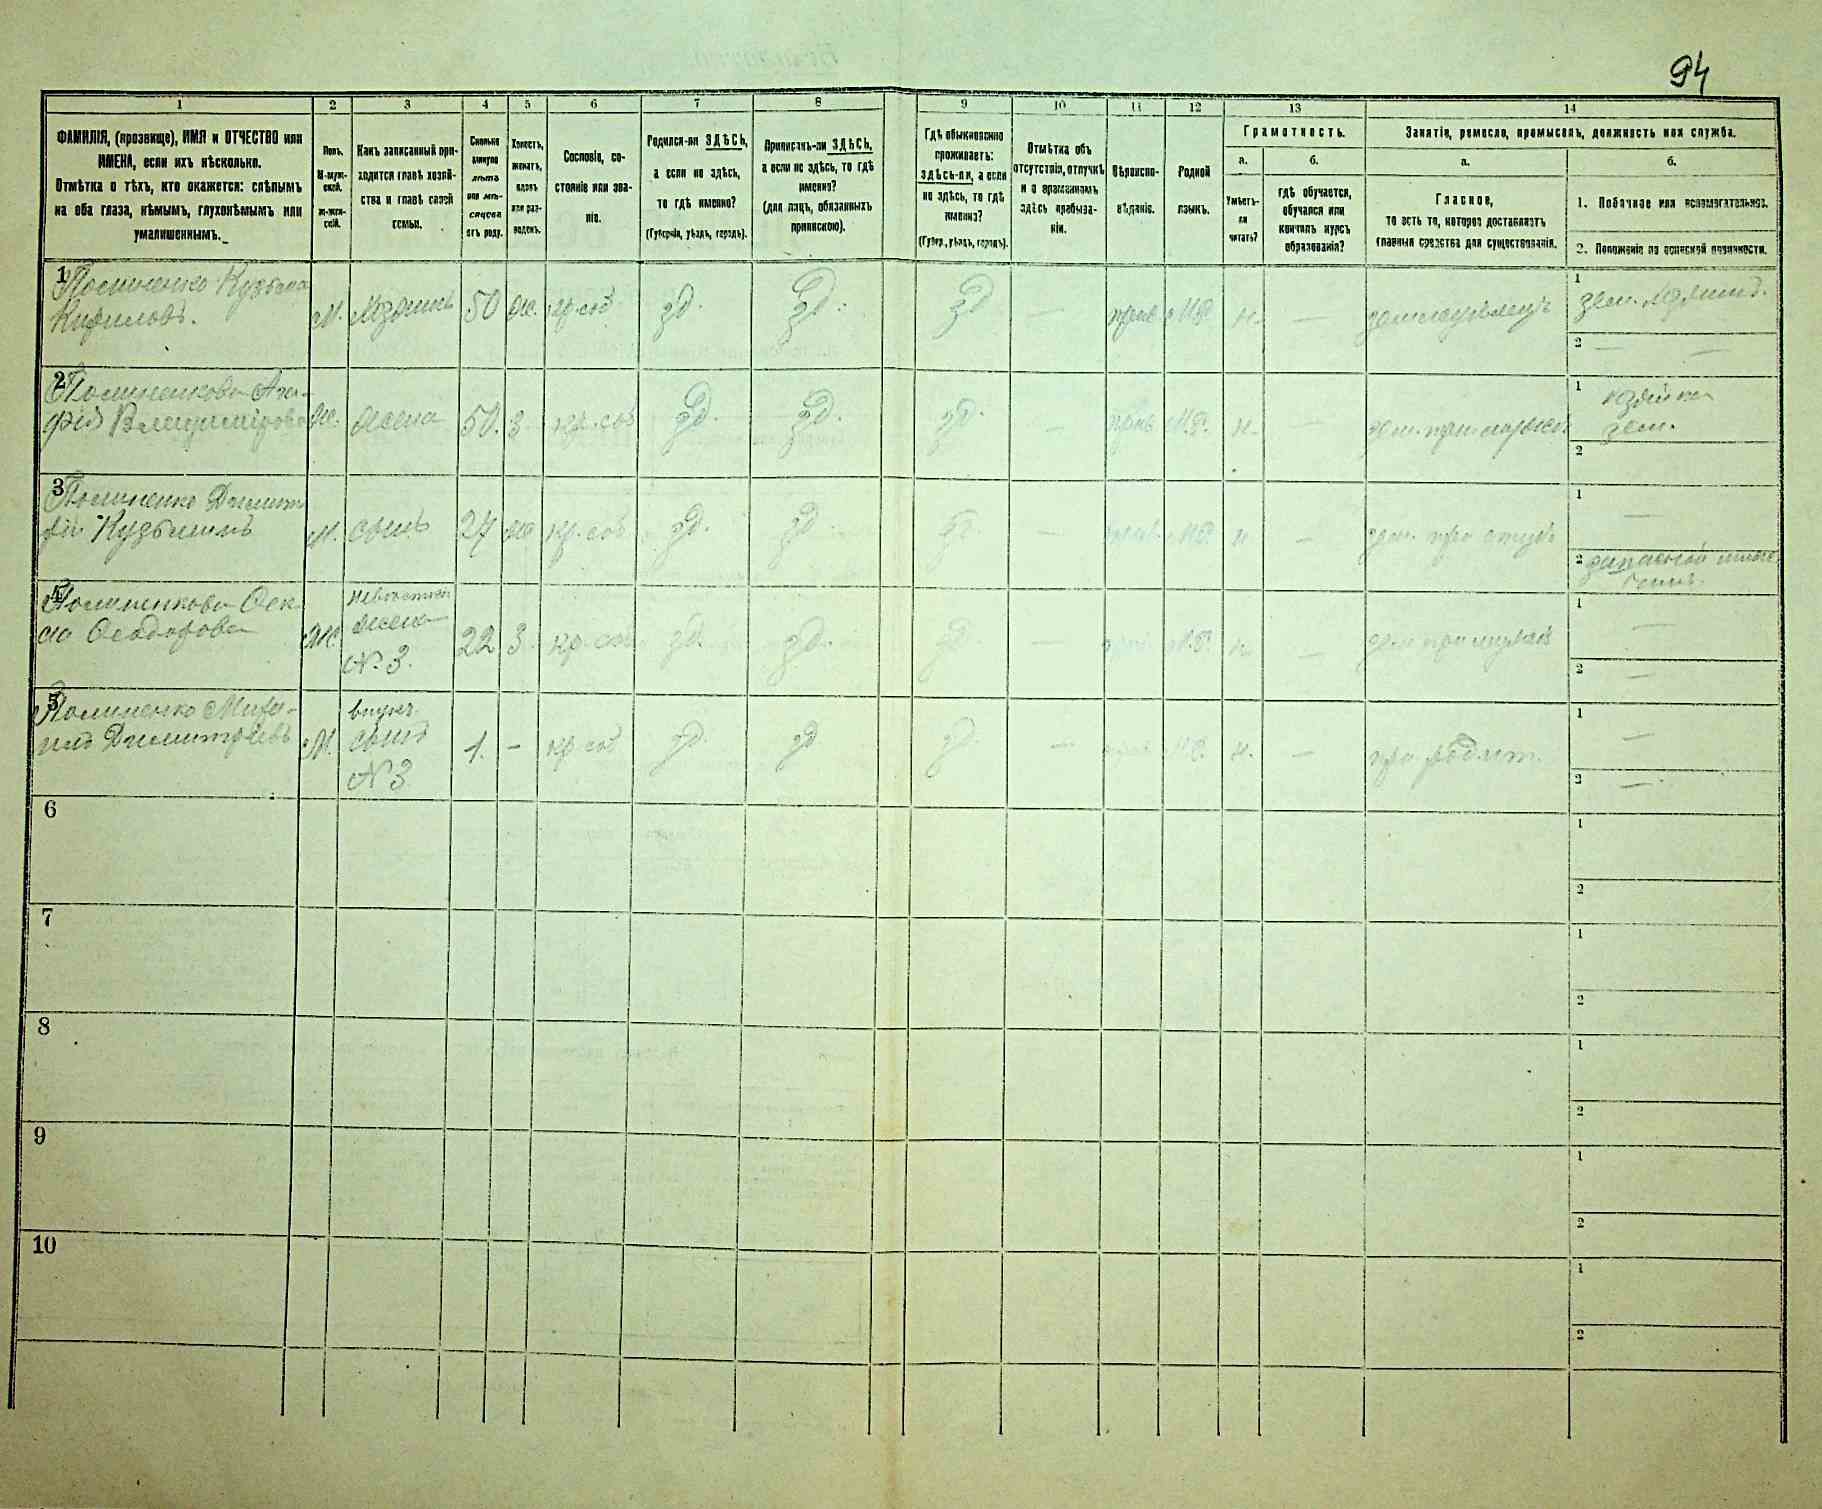 94
1 2 3 4 5 6 7 8 9 10 11 12 13 14
ФАМИЛІЯ, (прозвище), ИМЯ и ОТЧЕСТВО или
ИМЕНА, если ихъ нѣсколько.
Отмѣтка о тѣхъ, кто окажется: слѣпымъ
на оба глаза, нѣмымъ, глухонѣмымъ или
умалишеннымъ.
Полъ.
М-муж-
ской.
ж-жен-
скій.
Какъ записанный при-
ходится главѣ хозяй-
ства и главѣ своей
семьи.
Сколько
минуло
лѣтъ
или мѣ-
сяцевъ
отъ роду.
Холостъ,
женатъ,
вдовъ
или раз-
веденъ.
Сословіе, со-
стояніе или зва-
ніе.
Родился-ли ЗДѢСЬ,
а если не здѣсь,
то гдѣ именно?
(Губернія, уѣздъ, городъ).
Приписанъ-ли ЗДѢСЬ,
а если не здѣсь, то гдѣ
именно?
(для лицъ, обязанныхъ
припискою).
Гдѣ обыкновенно
проживаетъ:
ЗДѢСЬ-ли, а если
не здѣсь, то гдѣ
именно?
(Губер., уѣздъ, городъ).
Отмѣтка объ
отсутствіи, отлучкѣ
и о временномъ
здѣсь пребыва-
ніи.
Вѣроиспо-
вѣданіе.
Родной
языкъ.
Грамотность.
а.
Умѣетъ-
ли
читать?
б.
гдѣ обучается,
обучался или
кончилъ курсъ
образованія?
Занятіе, ремесло, промыселъ, должность или служба.
а.
Главное,
то есть то, которое доставляетъ
главныя средства для существованія.
б.
1. Побочное или вспомогательное.
2. Положеніе по воинской повинности.
1 Кузьма
Кириловъ. М. Хозяинъ 50 же. кр. соб зд. зд. зд — прав м.р. н. — земледѣлецъ 1 зем. хозяинъ.
2 — —
2 Ага-
фія Владиміровна Же. жена 50. з кр. соб зд. зд. зд. — прав м.р. н. — 1 хозяйка
зем.
2
3
Кузьминъ М. сынъ 27 же кр. соб зд. зд зд. — прав. м.р. н — зем. при отцѣ 1 —
2 запасной
4
Ѳеодорова Же. невѣстка
жена
№. 3. 22 з. кр. соб зд. зд. зд. — м.р. н. — 1 —
2 —
5 Миха-
илъ Димитріевъ М. внукъ
сынъ
№ 3 1. — кр. соб зд. зд зд. — м.р. н. — при родит. 1 —
2 —
6 1
2
7 1
2
8 1
2
9 1
2
10 1
2